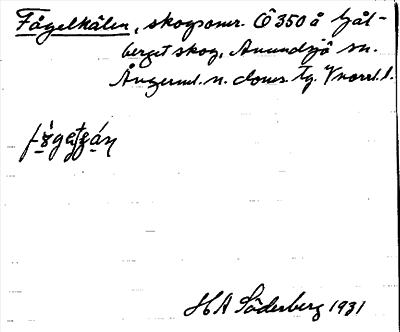 Fågelkålen, skogsomr. Ö 350 å Gål-
berget skog, Anundsjö sn.
Ångerml. n. doms. tg. Vnorrl. l.
HA Söderberg 1931